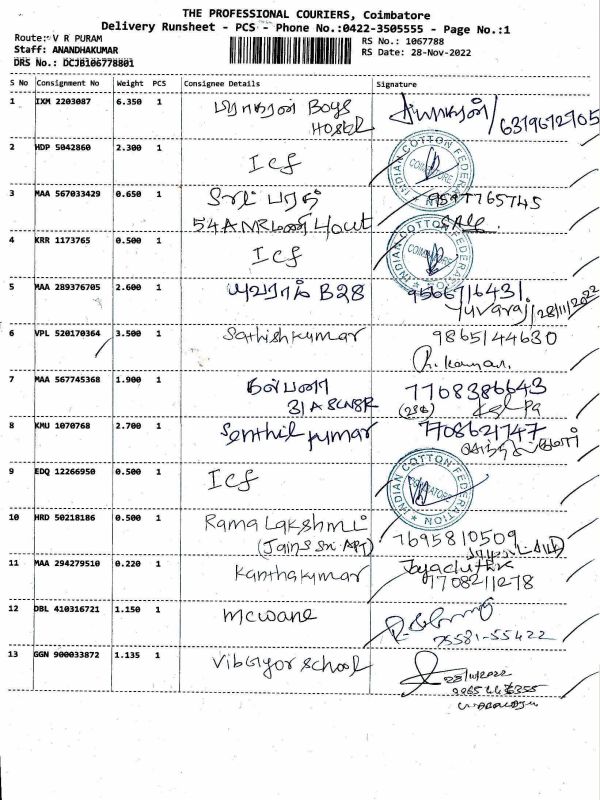 THE PROFESSIONAL COURIERS, Coimbatore
Delivery Runsheet - PCS - Phone No.:0422-3505555 - Page No.:1
Route: V R PURAM
RS No.: 1067788
Staff: ANANDHAKUMAR
RS Date: 28-Nov-2022
DRS No.: DCJ8106778801
S No Consignment No Weight PCS Consignee Details Signature
1 IXM 2203087 6.350 1 Boys
Hostel 6319672705
2 HDP 5042860 2.300 1 Icf
INDIAN COTTON FEDERATION COIMBATORE
3 MAA 567033429 0.650 1
54 A NR 4/out
4 KRR 1173765 0.500 1 Icf
INDIAN COTTON FEDERATION COIMBATORE
5 MAA 289376705 2.600 1 யுவராஜ் B28 9566716431
Yuvaraj 28/11/2022
6 VPL 520170364 3.500 1 Sathishkumar 9865144630
7 MAA 567745368 1.900 1 கல்பனா 7708386643
8 KMU 1070768 2.700 1 Senthil kumar 7708621747
9 EDQ 12266950 0.500 1 Icf
INDIAN COTTON FEDERATION COIMBATORE
10 HRD 50218186 0.500 1 Rama Lakshmi 7695810509
(Jains Sri APT)
11 MAA 294279510 0.220 1 Kanthakumar
7708211278
12 DBL 410316721 1.150 1 mcwane
75581-55422
13 GGN 900033872 1.135 1 Vibgyor school 28/11/2022